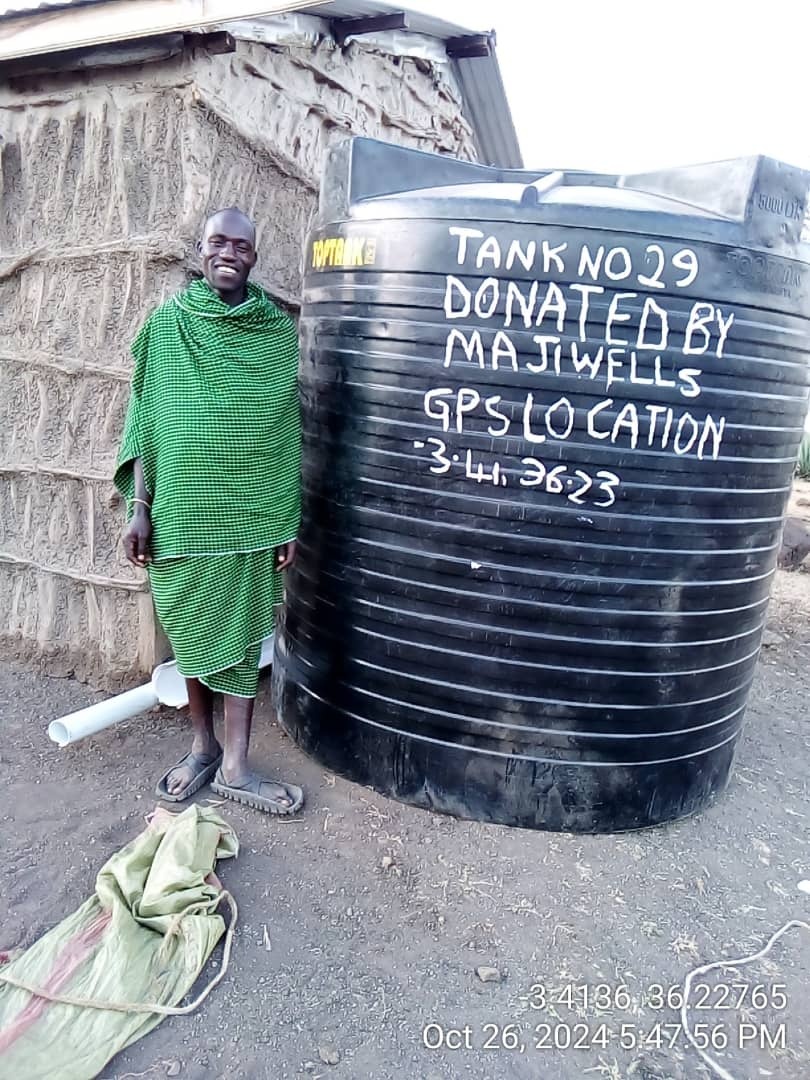 5000 LTR
TOPTANK
TANK NO 29
DONATED BY
MAJIWELLS
GPS LOCATION
-3.41, 36.23
-3.4136 36.22765
Oct 26, 2024 5:47:56 PM